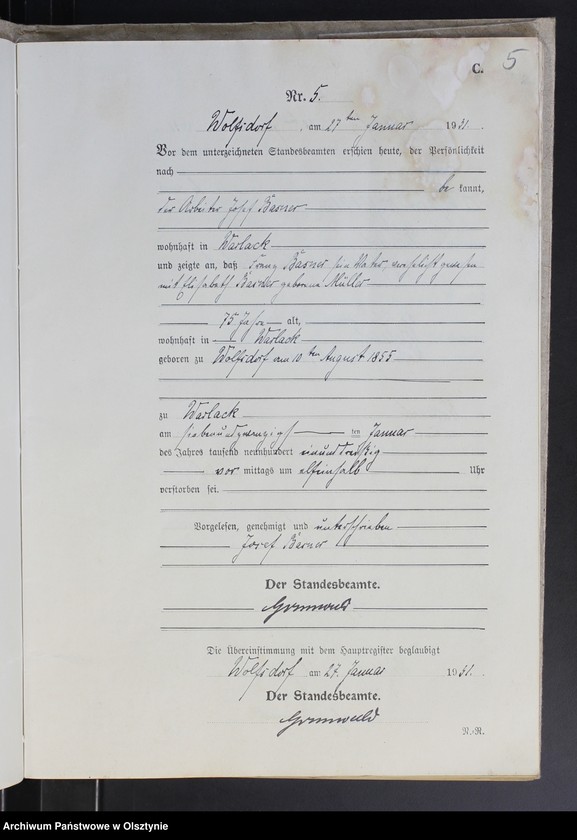 C. 5
Nr. 5.
Wolfsdorf, am 27ten Januar 1931.
Vor dem unterzeichneten Standesbeamten erschien heute, der Persönlichkeit
nach
be kannt,
der Arbeiter Josef Basner
wohnhaft in Warlack
und zeigte an, daß Franz Basner sein Vater, verehelicht gewesen
mit Elisabeth Basner geborene Müller
75 Jahre alt,
wohnhaft in Warlack
geboren zu Wolfsdorf am 10ten August 1855
zu Warlack
am siebenundzwanzigsten Januar
des Jahres tausend neunhundert einunddreißig
vor mittags um elfeinhalb Uhr
verstorben sei.
Vorgelesen, genehmigt und unterschrieben
Josef Basner
Der Standesbeamte.
Grunwald
Die Übereinstimmung mit dem Hauptregister beglaubigt
Wolfsdorf am 27. Januar 1931.
Der Standesbeamte.
Grunwald
N.-R.
Archiwum Państwowe w Olsztynie